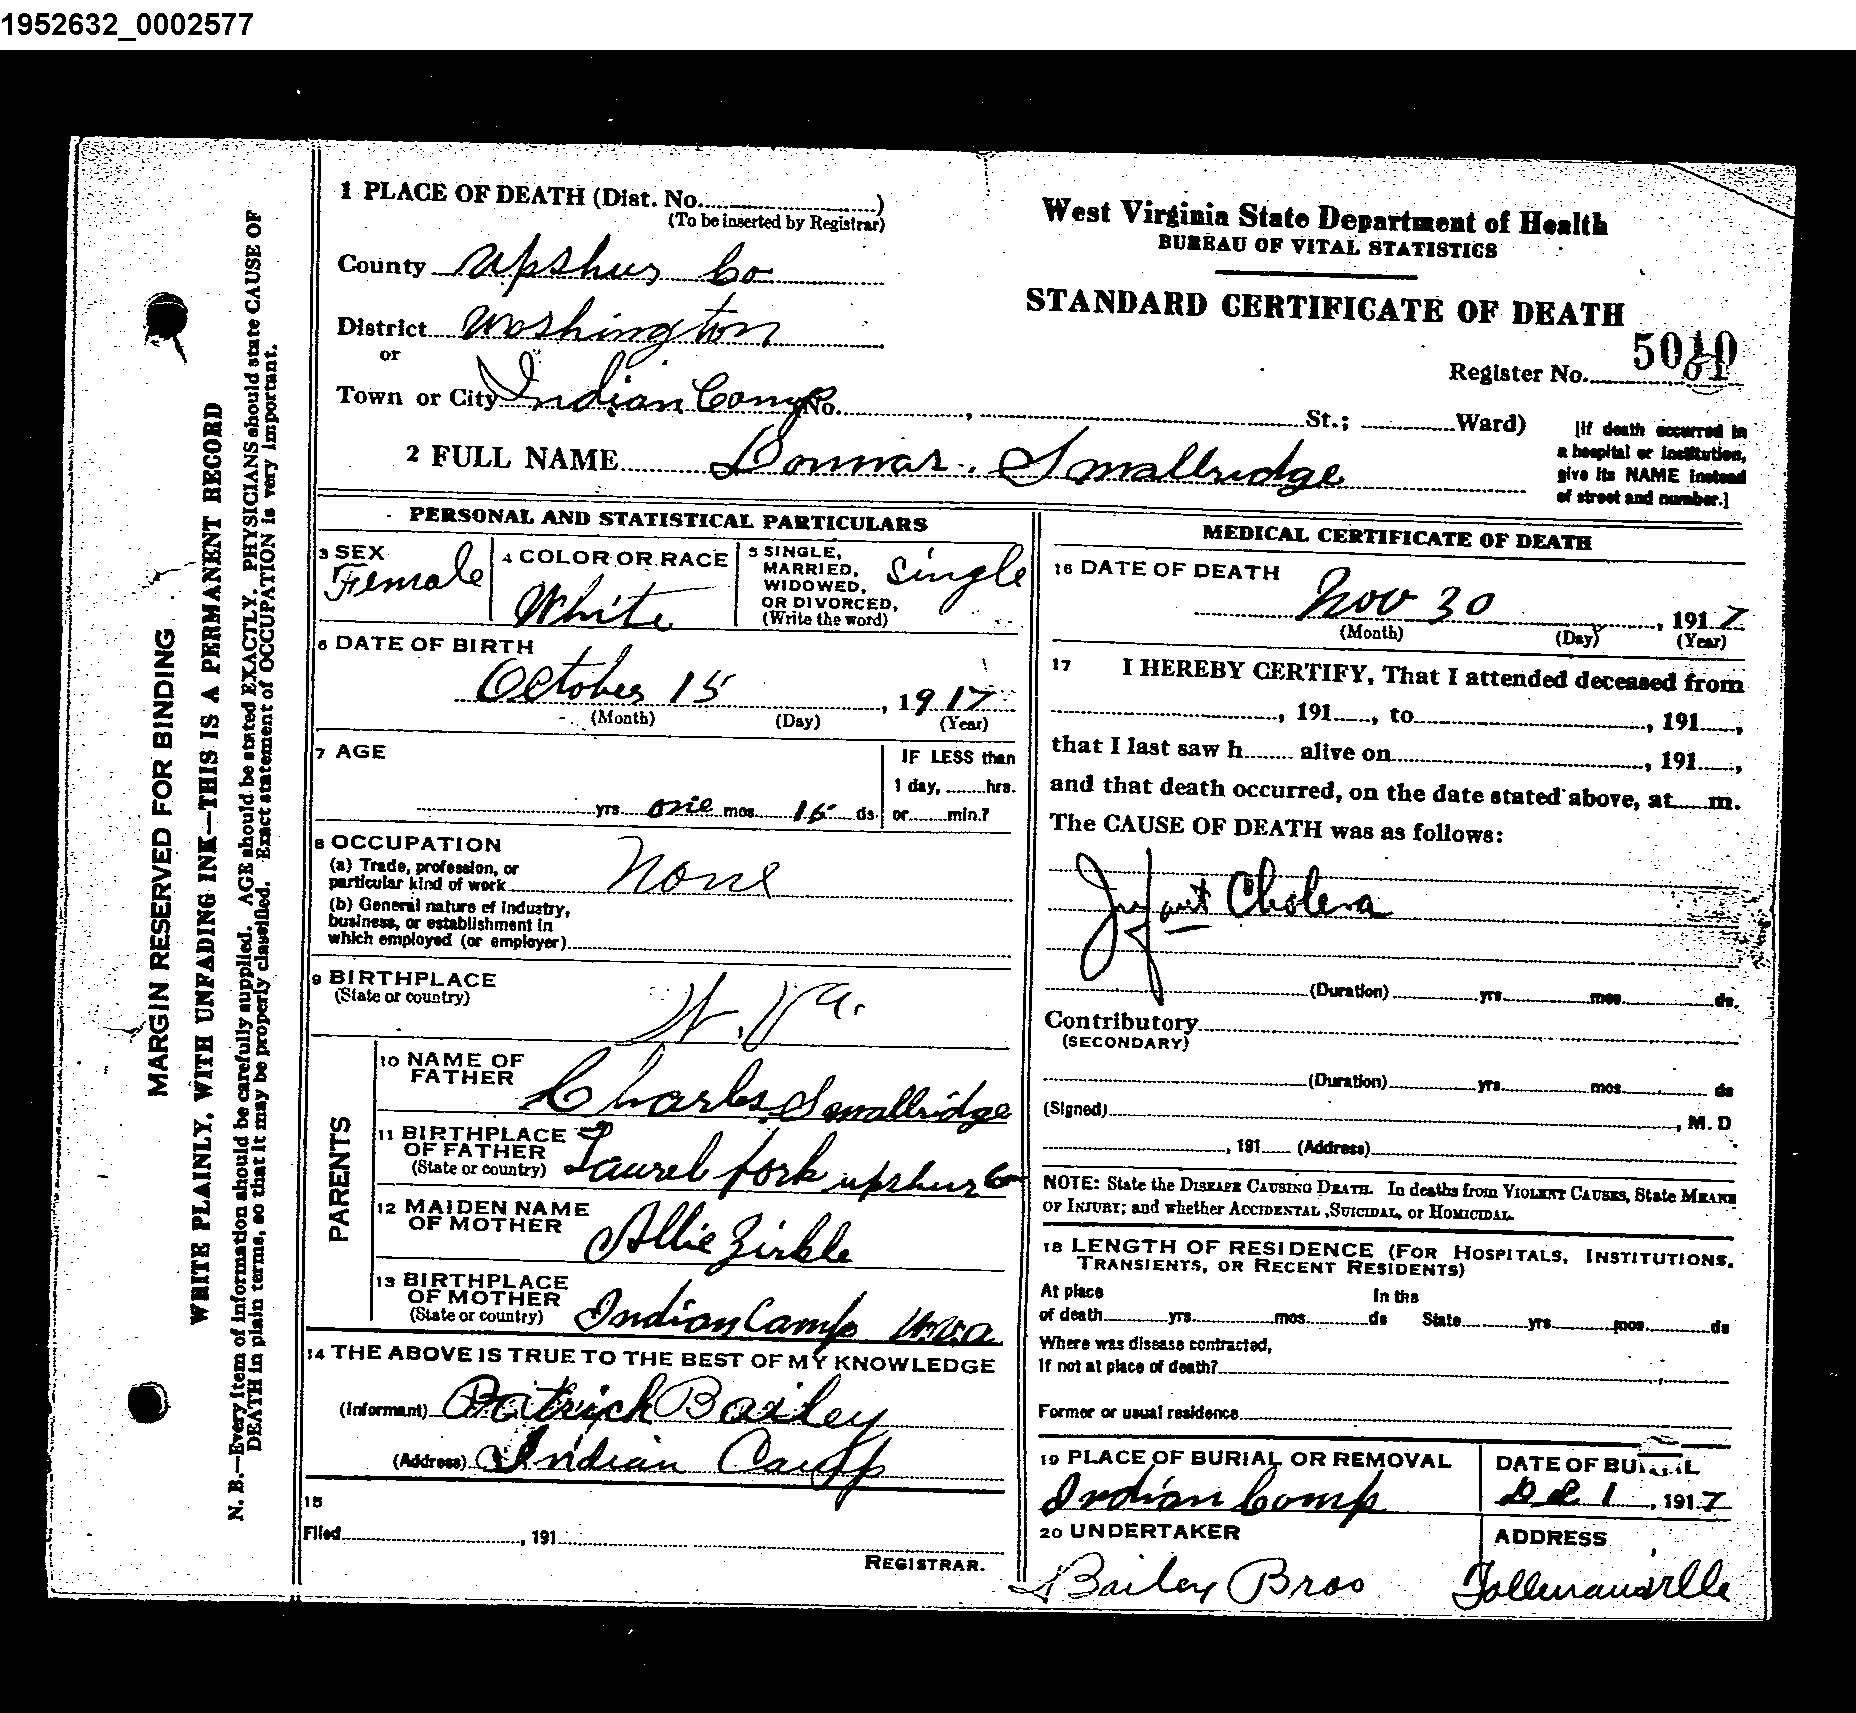 1952632_0002577
1 PLACE OF DEATH (Dist. No.
(To be inserted by Registrar)
County Upshur Co
District Washington
or
Town or City Indian Camp No. , St.; Ward)
2 FULL NAME Smallridge
West Virginia State Department of Health
BUREAU OF VITAL STATISTICS
STANDARD CERTIFICATE OF DEATH
Register No.
[If death occurred in
a hospital or institution,
give its NAME instead
of street and number.]
MARGIN RESERVED FOR BINDING
WRITE PLAINLY, WITH UNFADING INK—THIS IS A PERMANENT RECORD
N. B.—Every item of information should be carefully supplied. AGE should be stated EXACTLY. PHYSICIANS should state CAUSE OF
DEATH in plain terms, so that it may be properly classified. Exact statement of OCCUPATION is very important.
PERSONAL AND STATISTICAL PARTICULARS
3 SEX
Female
4 COLOR OR RACE
White
5 SINGLE,
MARRIED,
WIDOWED,
OR DIVORCED,
(Write the word)
Single
6 DATE OF BIRTH
October 15, 1917
(Month) (Day) (Year)
7 AGE
yrs. one mos. 15 ds.
IF LESS than
1 day, hrs.
or min.?
8 OCCUPATION
(a) Trade, profession, or
particular kind of work None
(b) General nature of industry,
business, or establishment in
which employed (or employer)
9 BIRTHPLACE
(State or country)
W. Va.
PARENTS
10 NAME OF
FATHER
Charles Smallridge
11 BIRTHPLACE
OF FATHER
(State or country)
Laurel fork upshur Co
12 MAIDEN NAME
OF MOTHER
Allie Zirkle
13 BIRTHPLACE
OF MOTHER
(State or country)
Indian Camp W.Va
14 THE ABOVE IS TRUE TO THE BEST OF MY KNOWLEDGE
(Informant) Patrick Bailey
(Address) Indian Camp
15
Filed , 191
REGISTRAR.
MEDICAL CERTIFICATE OF DEATH
16 DATE OF DEATH
Nov 30, 1917
(Month) (Day) (Year)
17 I HEREBY CERTIFY, That I attended deceased from
, 191 , to , 191 ,
that I last saw h alive on , 191 ,
and that death occurred, on the date stated above, at m.
The CAUSE OF DEATH was as follows:
Infant Cholera
(Duration) yrs. mos. ds.
Contributory
(SECONDARY)
(Duration) yrs. mos. ds
(Signed) , M. D
, 191 (Address)
NOTE: State the DISEASE CAUSING DEATH. In deaths from VIOLENT CAUSES, State MEANS
OF INJURY; and whether ACCIDENTAL ,SUICIDAL, or HOMICIDAL.
18 LENGTH OF RESIDENCE (FOR HOSPITALS, INSTITUTIONS,
TRANSIENTS, OR RECENT RESIDENTS)
At place In the
of death yrs. mos. ds State yrs. mos. ds
Where was disease contracted,
If not at place of death?
Former or usual residence
19 PLACE OF BURIAL OR REMOVAL
Indian Camp
DATE OF BURIAL
1, 1917
20 UNDERTAKER
Bailey Bros
ADDRESS